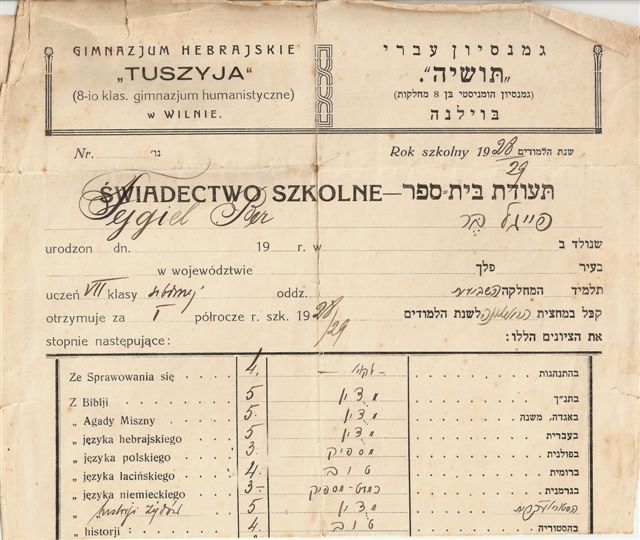 GIMNAZJUM HEBRAJSKIE
„TUSZYJA“
(8-io klas. gimnazjum humanistyczne)
w WILNIE.
גמנסיון עברי
„תושיה“.
(גמנסיון הומניסטי בן 8 מחלקות)
בוילנה
Nr. נר׳ Rok szkolny 1928/29 שנת הלמודים
ŚWIADECTWO SZKOLNE—תעודת בית-ספר
Fejgiel Ber פייגל בר
urodzon dn. 19 r. w שנולד ב
w województwie פלך בעיר
uczeń VII klasy oddz. תלמיד המחלקה השביעית
otrzymuje za I półrocze r. szk. 1928/29 קבל במחצית הראשונה לשנת הלמודים
stopnie następujące: את הציונים הללו:
Ze Sprawowania się 4. בהתנהגות
Z Biblji 5 מצוין בתנ״ך
„ Agady Miszny 5. מצוין באגדה, משנה
„ języka hebrajskiego 5 מצוין בעברית
„ języka polskiego 3. מספיק בפולנית
„ języka łacińskiego 4 טוב ברומית
„ języka niemieckiego 3- כמעט-מספיק בגרמנית
„ historji żydów 5 מצוין
„ historji: 4. טוב בהסטוריה